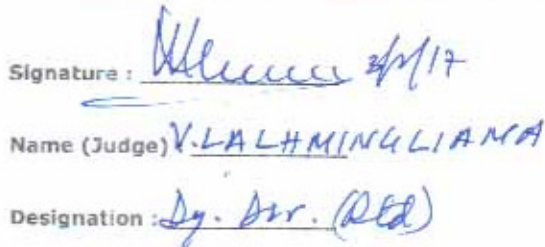 Signature :
Name (Judge) V. LALHMINGLIANA
Designation : Dy. Dir. (Rtd)